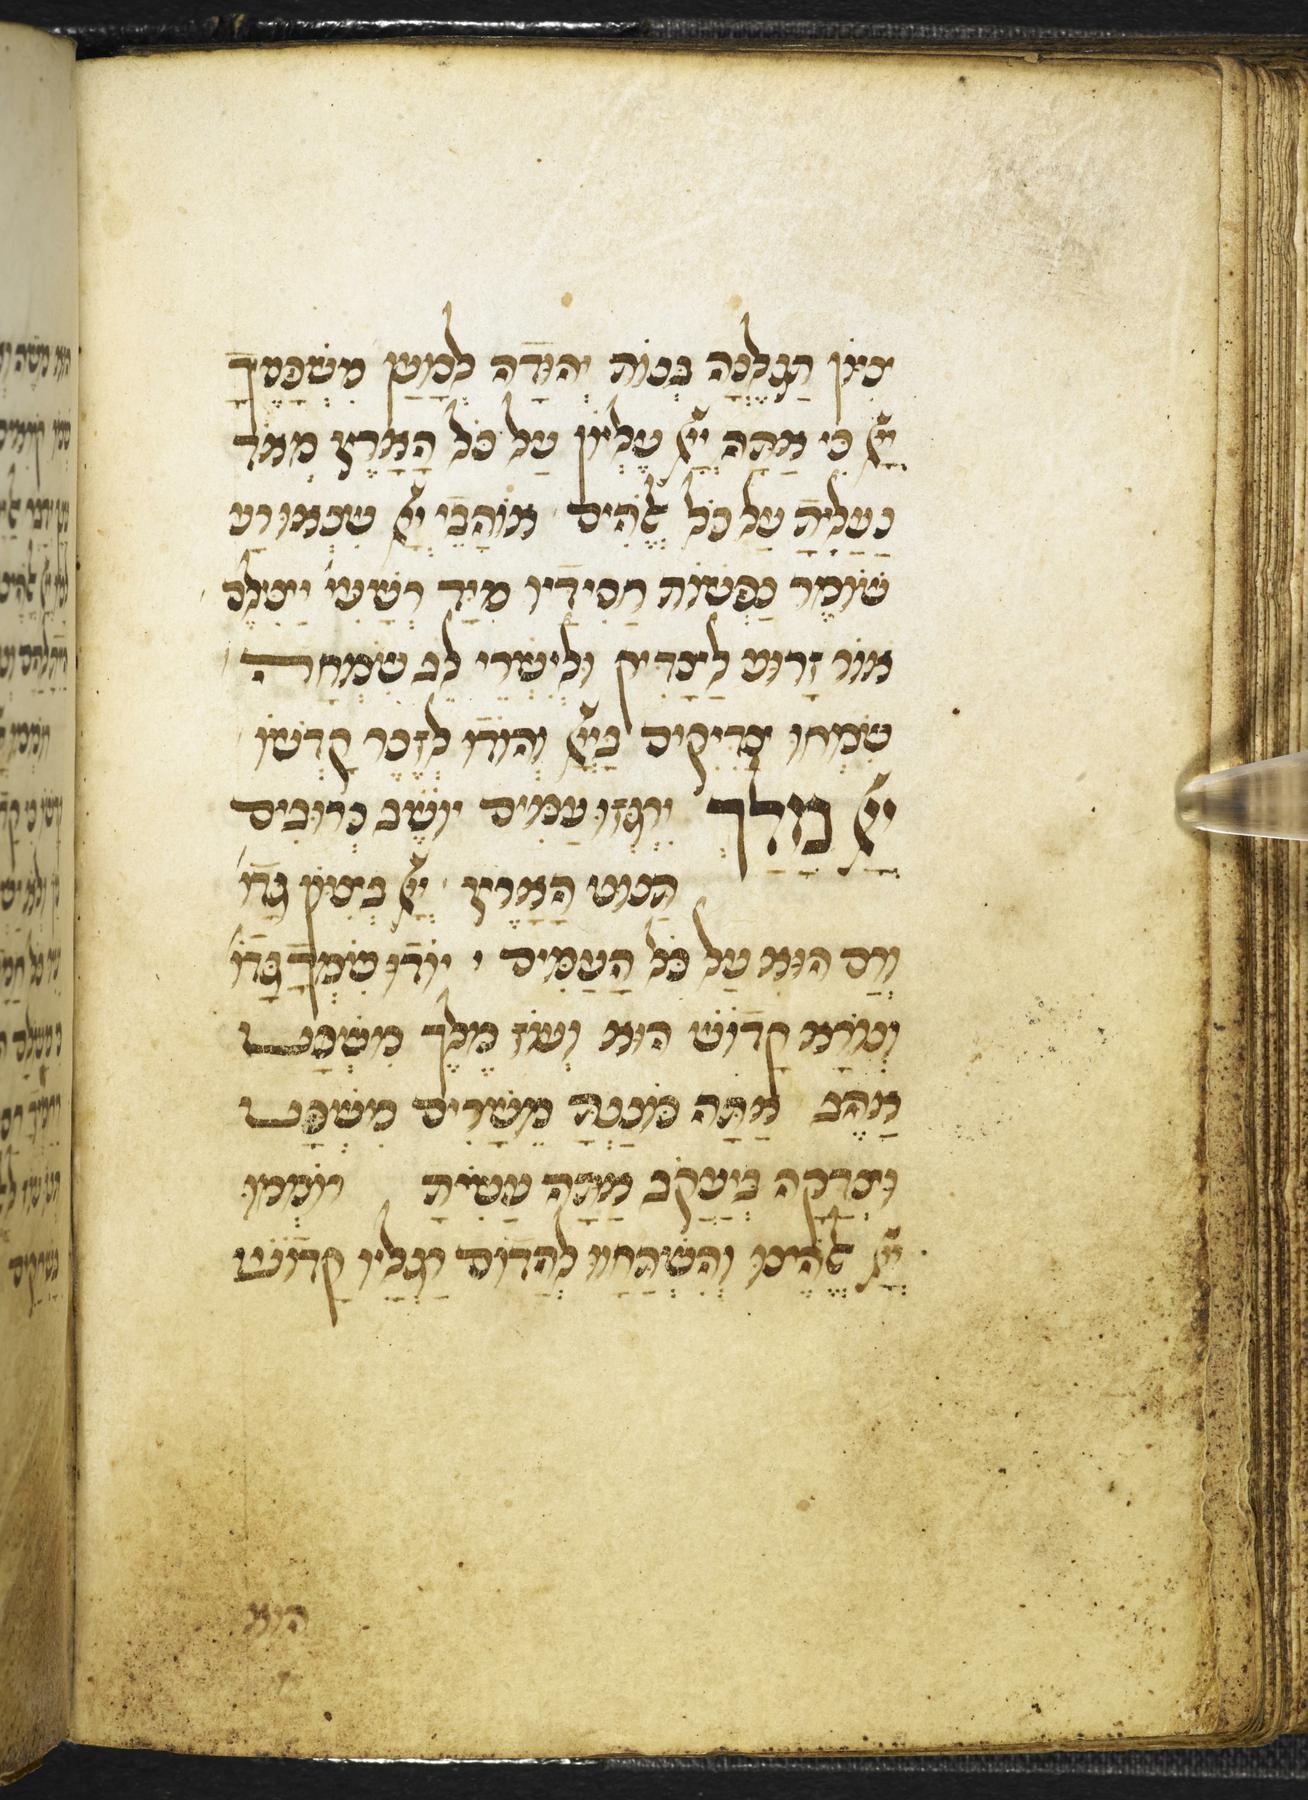 ציון תגלנה בנות יהודה למען משפטיך
ייׄ כי אתה ייׄ עליון על כל הארץ מאד
נעלית על כל אלהים אוהבי ייׄ שנאו רע
שומר נפשות חסידיו מיד רשעי׳ יצילם
אור זרוע לצדיק ולישרי לב שמחה
שמחו צדיקים בייׄ והודו לזכר קדשו
ייׄ מלך ירגזו עמים יושב כרובים
תנוט הארץ ייׄ בציון גדו׳
ורם הוא על כל העמים יודו שמך גדו׳
ונורא קדוש הוא ועוז מלך משפט
אהב אתה כוננת משרים משפט
וצדקה ביעקב אתה עשית רוממו
ייׄ אלהינו והשתחוו להדום רגליו קדוש
הוא